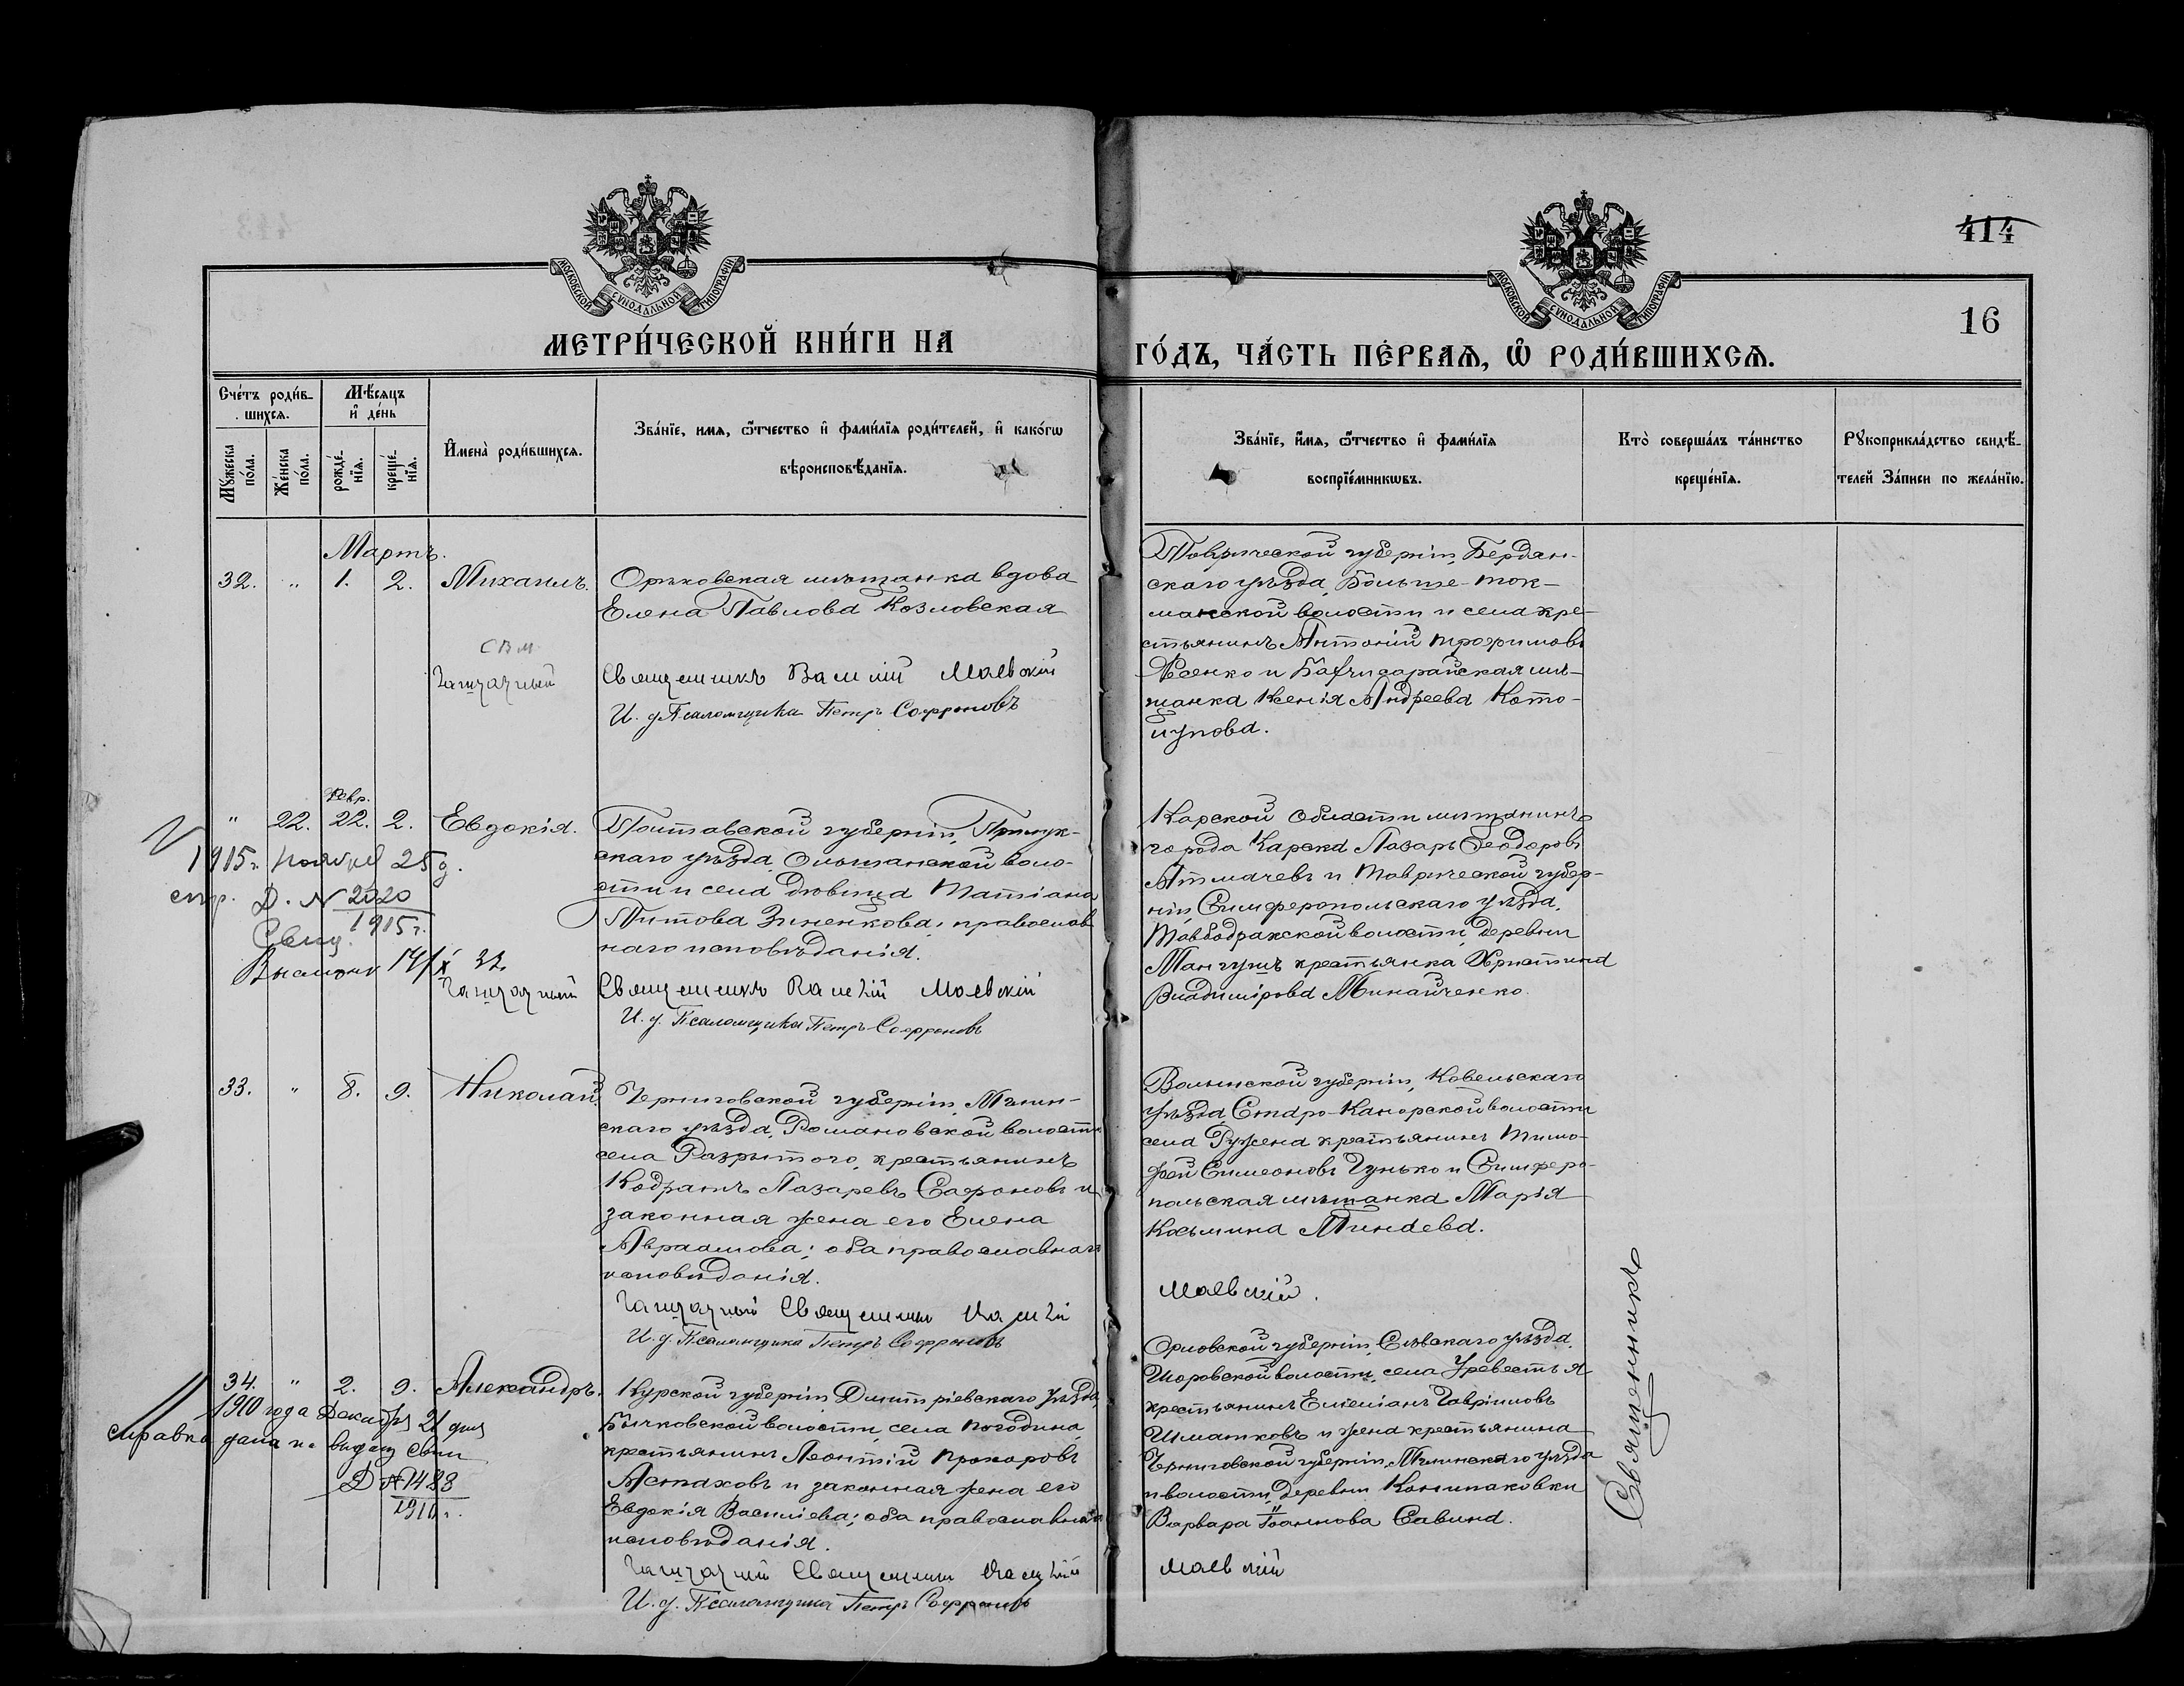 414
16
МОСКОВСКОЙ СѴНОДАЛЬНОЙ ТИПОГРАФІИ
МОСКОВСКОЙ СѴНОДАЛЬНОЙ ТИПОГРАФІИ
МЕТРИ́ЧЕСКОЙ КНИ́ГИ НА
ГО́ДЪ, ЧА́СТЬ ПЕ́РВАѦ, Ѽ РОДИ́ВШИХСѦ.
Сче́тъ роди́в-
шихсѧ.
Мꙋ́жеска
по́ла.
Же́нска
по́ла.
Мѣ́сѧцъ
и҆ де́нь
рожде́-
нїѧ.
креще́-
нїѧ.
И҆мена̀ роди́вшихсѧ.
Зва́нїе, имѧ, ѿтчество и҆ фами́лїѧ роди́телей, и҆ како́гѡ
вѣроисповѣ́данїѧ.
Зва́нїе, и҆́мѧ, ѿтчество и҆ фами́лїѧ
воспрїе́мникѡвъ.
Кто̀ соверша́лъ та́инство
креще́нїѧ.
Рꙋкоприкла́дство свидѣ́-
телей За́писи по жела́нїю.
Мартъ.
32. " 1. 2. Михаилъ.
Орѣховская мѣщанка вдова
Елена Павлова Козловская
Священникъ Василій Маевскій
И. д. Псаломщика Петръ Софроновъ
Таврической губерніи, Бердян-
скаго уѣзда, Больше-Ток-
макской волости и села кре-
стьянинъ Антоній Трофимовъ
и Бахчисарайская мѣ-
щанка Ксенія Андреева
Февр.
" 22. 22. 2. Евдокія.
Полтавской губерніи, Прилук-
скаго уѣзда, Ольшанской воло-
сти и села дѣвица Татіана
Титова Зиненкова, православ-
наго исповѣданія.
Священникъ Василій Маевскій
И. д. Псаломщика Петръ Софроновъ
1915 г. Ноября 25 д.
Д. № 2020
1915 г.
Карской области мѣщанинъ
города Карска Лазарь Ѳеодоровъ
Атмачевъ и Таврической губер-
ніи, Симферопольскаго уѣзда,
волости, деревни
Мангушъ крестьянка Христина
Владимірова Минайченко.
33. " 8. 9. Николай.
Черниговской губерніи, Мглин-
скаго уѣзда, Романовской волости
села Разрытого, крестьянинъ
Кодратъ Лазаревъ Сафоновъ и
законная жена его Елена
Авраамова; оба православнаго
исповѣданія.
Священникъ Василій
И. д. Псаломщика Петръ Софроновъ
Волынской губерніи, Ковельскаго
уѣзда волости
села крестьянинъ Тимо-
фей Симеоновъ Гунько и Симферо-
польская мѣщанка Марія
Косьмина Минаева.
Маевскій.
34. " 2. 9. Александръ.
Курской губерніи Дмитріевскаго уѣзда,
волости, села Погодина
крестьянинъ Леонтій Прохоровъ
Астаховъ и законная жена его
Евдокія Василіева; оба православнаго
исповѣданія.
Священникъ Василій
И. д. Псаломщика Петръ Софроновъ
1910 года Декабря 21 дня
справка дана на выдачу
Д № 1488
1910 г.
Орловской губерніи, Сѣвскаго уѣзда,
волости, села
крестьянинъ Емеліанъ Гавріиловъ
Шматковъ и жена крестьянина
Черниговской губерніи, Мглинскаго уѣзда
и волости, деревни
Варвара Іоаннова Савина.
Маевскій
Священникъ